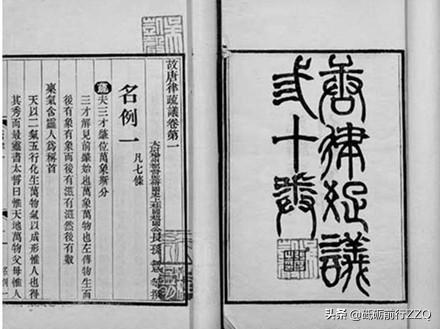 唐律疏議
弎十卷
故唐律疏議卷第一
長孫無忌等
名例一 凡七條
疏夫三才肇位萬象斯分
三才解見前肇始也萬象萬物也左傳物生而
後有象有象而後有滋有滋然後有數
稟氣含靈人爲稱首
天以二氣五行化生萬物氣以成形惟人也得
其秀而最靈書太誓曰惟天地萬物父母惟人
名例一
头条 @砥砺前行ZZQ